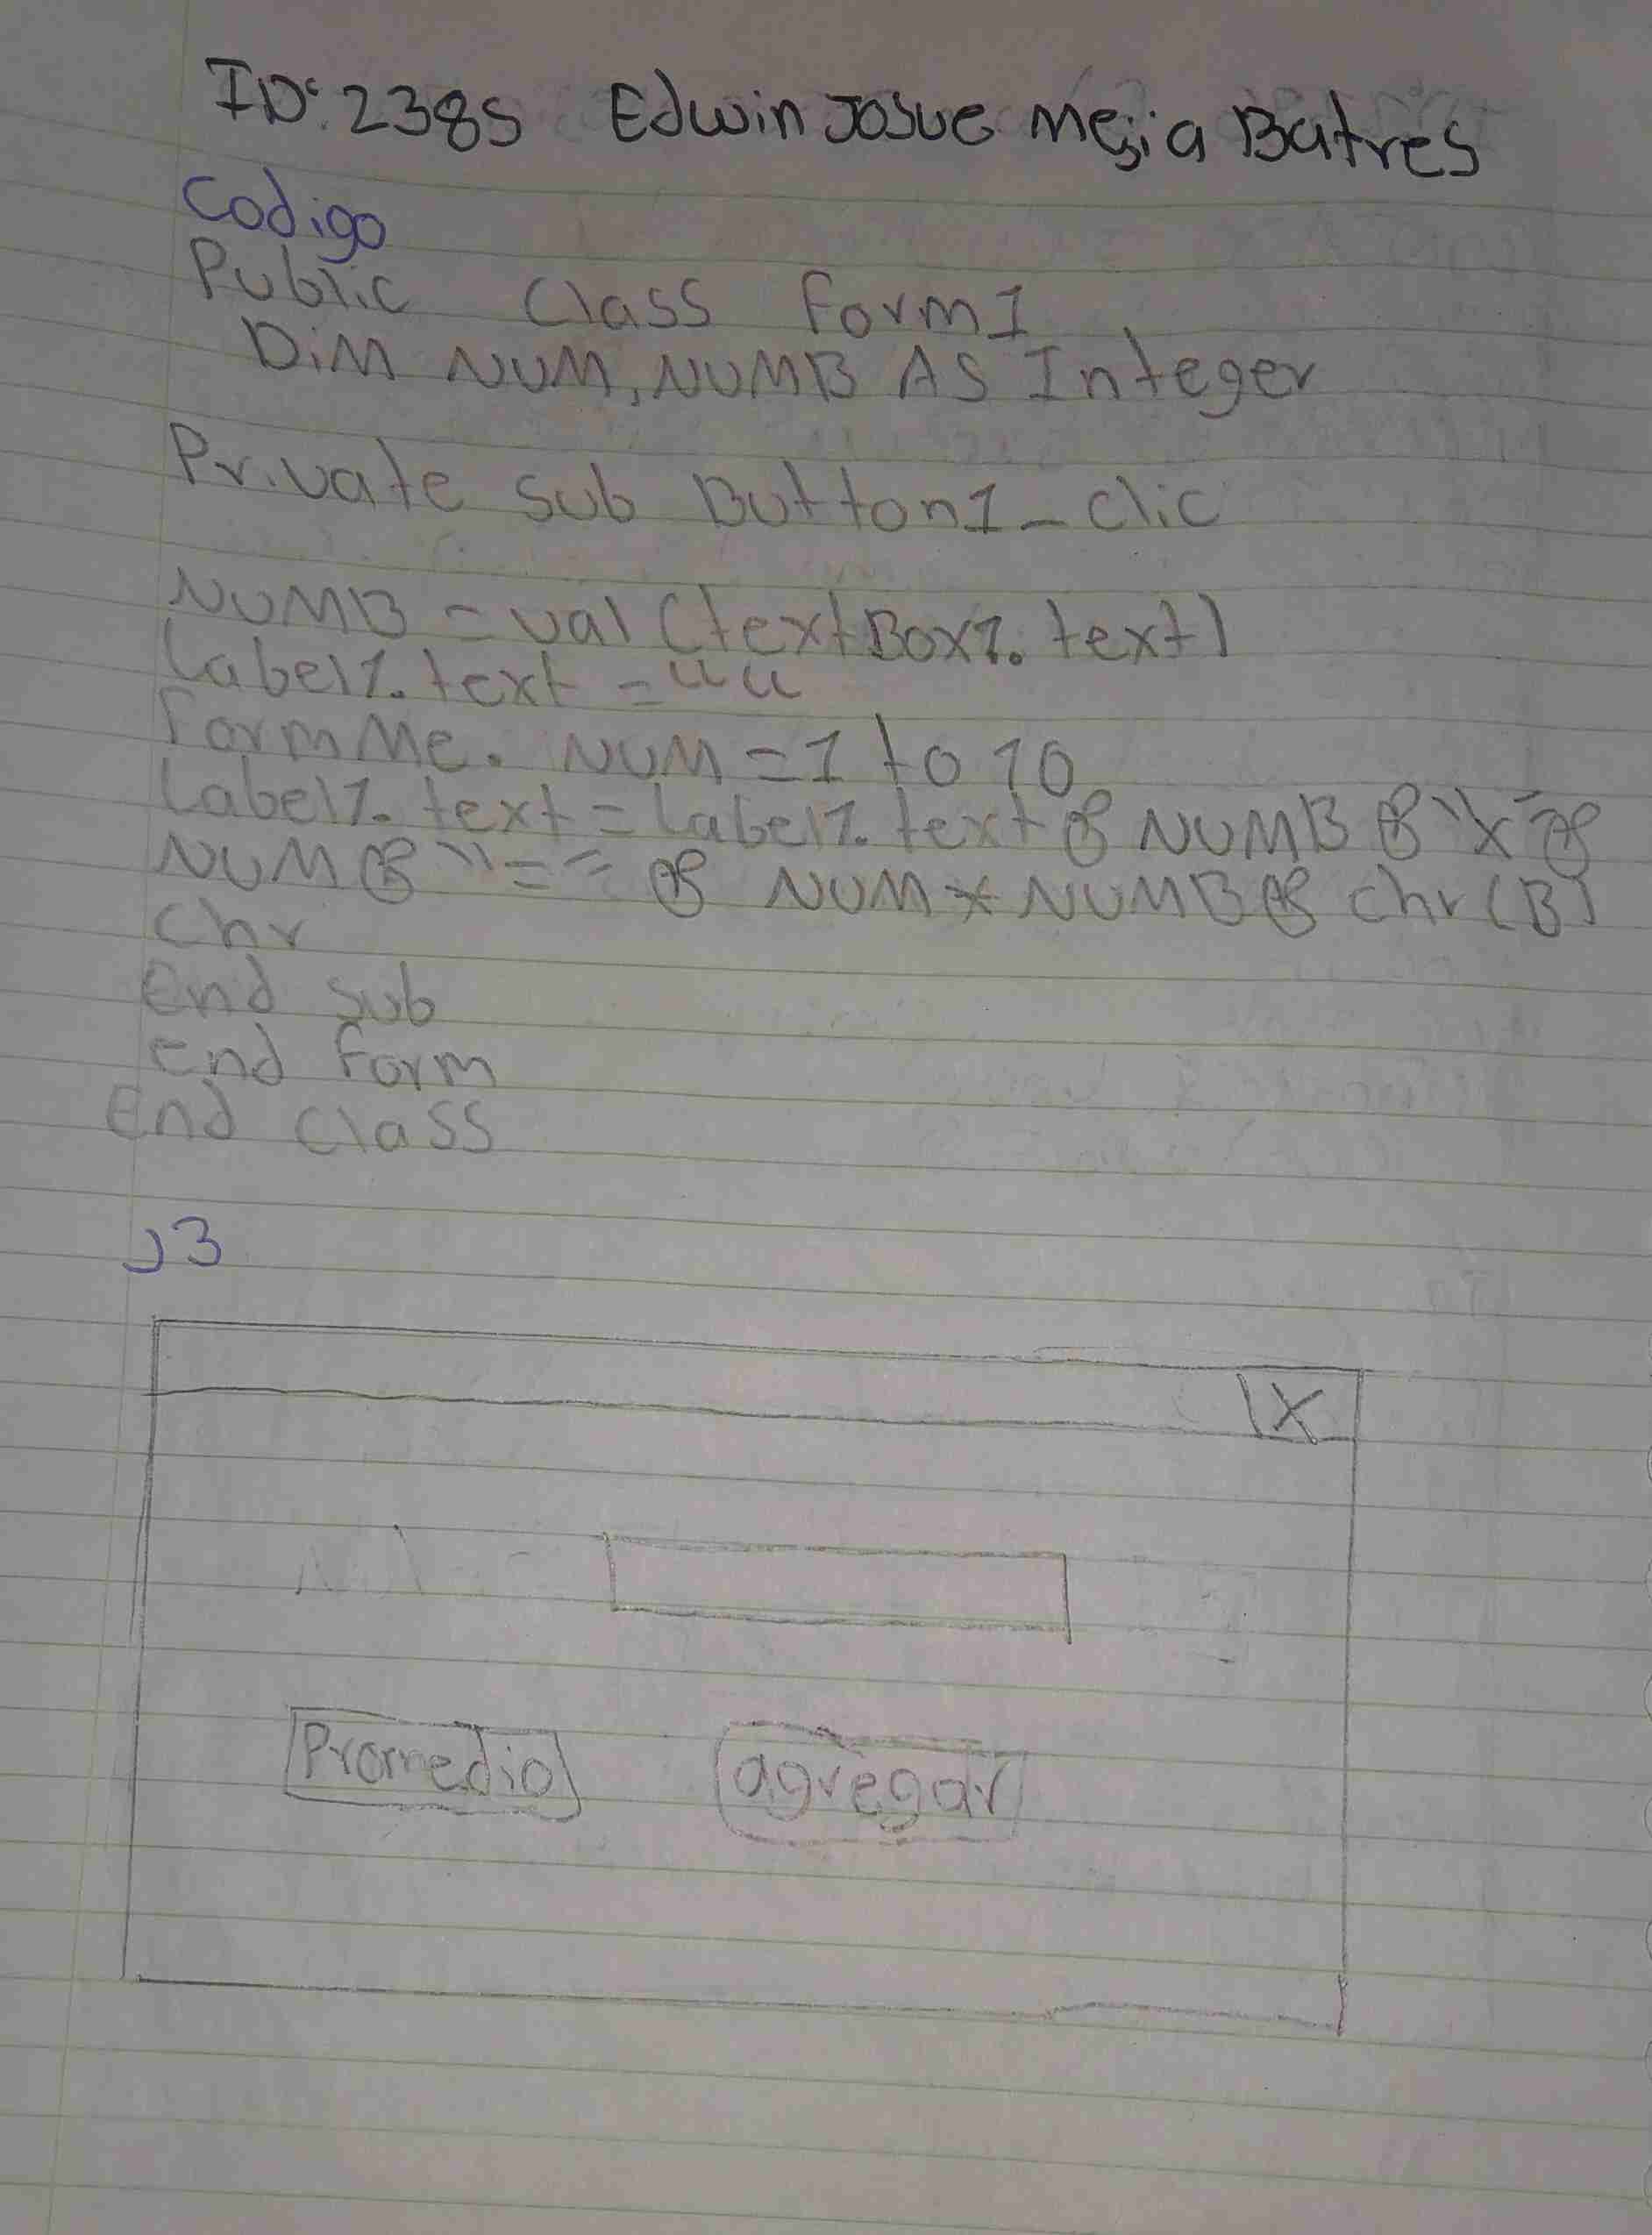 ID: 2385 Edwin Josue Mejia Batres
Codigo
Public Class Form1
Dim NUM, NUMB AS Integer
Private sub Button1_clic
NUMB = val (textBox1.text)
Label1.text = ""
Form Me. NUM = 1 to 10
Label1.text = Label1.text & NUMB & "x" &
NUM & "=" & NUM * NUMB & chr(B)
Chr
End sub
end Form
End class
J3
X
Promedio agregar